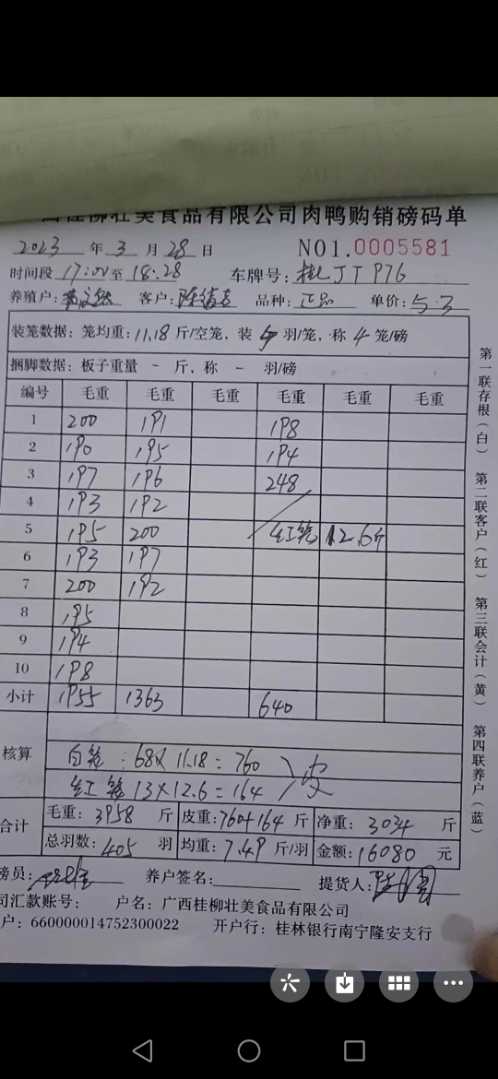 西桂柳壮美食品有限公司肉鸭购销磅码单
2023 年 3 月 28 日 NO1.0005581
时间段 17:00至 18:28 车牌号: 桂JTP76
养殖户: 客户: 品种: 正品 单价: 5.3
装笼数据: 笼均重: 11.18 斤/空笼, 装 5 羽/笼, 称 4 笼/磅
捆脚数据: 板子重量 - 斤, 称 - 羽/磅
编号 毛重 毛重 毛重 毛重 毛重 毛重
1 200 191 198
2 190 195 194
3 197 196 248
4 193 192
5 195 200 红笼 12.6斤
6 193 197
7 200 192
8 195
9 194
10 198
小计 1955 1363 640
核算 白笼: 68×11.18=760 皮
红笼 13×12.6=164
合计 毛重: 3958 斤 皮重: 760+164 斤 净重: 3034 斤
总羽数: 405 羽 均重: 7.49 斤/羽 金额: 16080 元
磅员: 养户签名: 提货人:
司汇款账号: 户名: 广西桂柳壮美食品有限公司
户: 660000014752300022 开户行: 桂林银行南宁隆安支行
第一联存根(白) 第二联客户(红) 第三联会计(黄) 第四联养户(蓝)